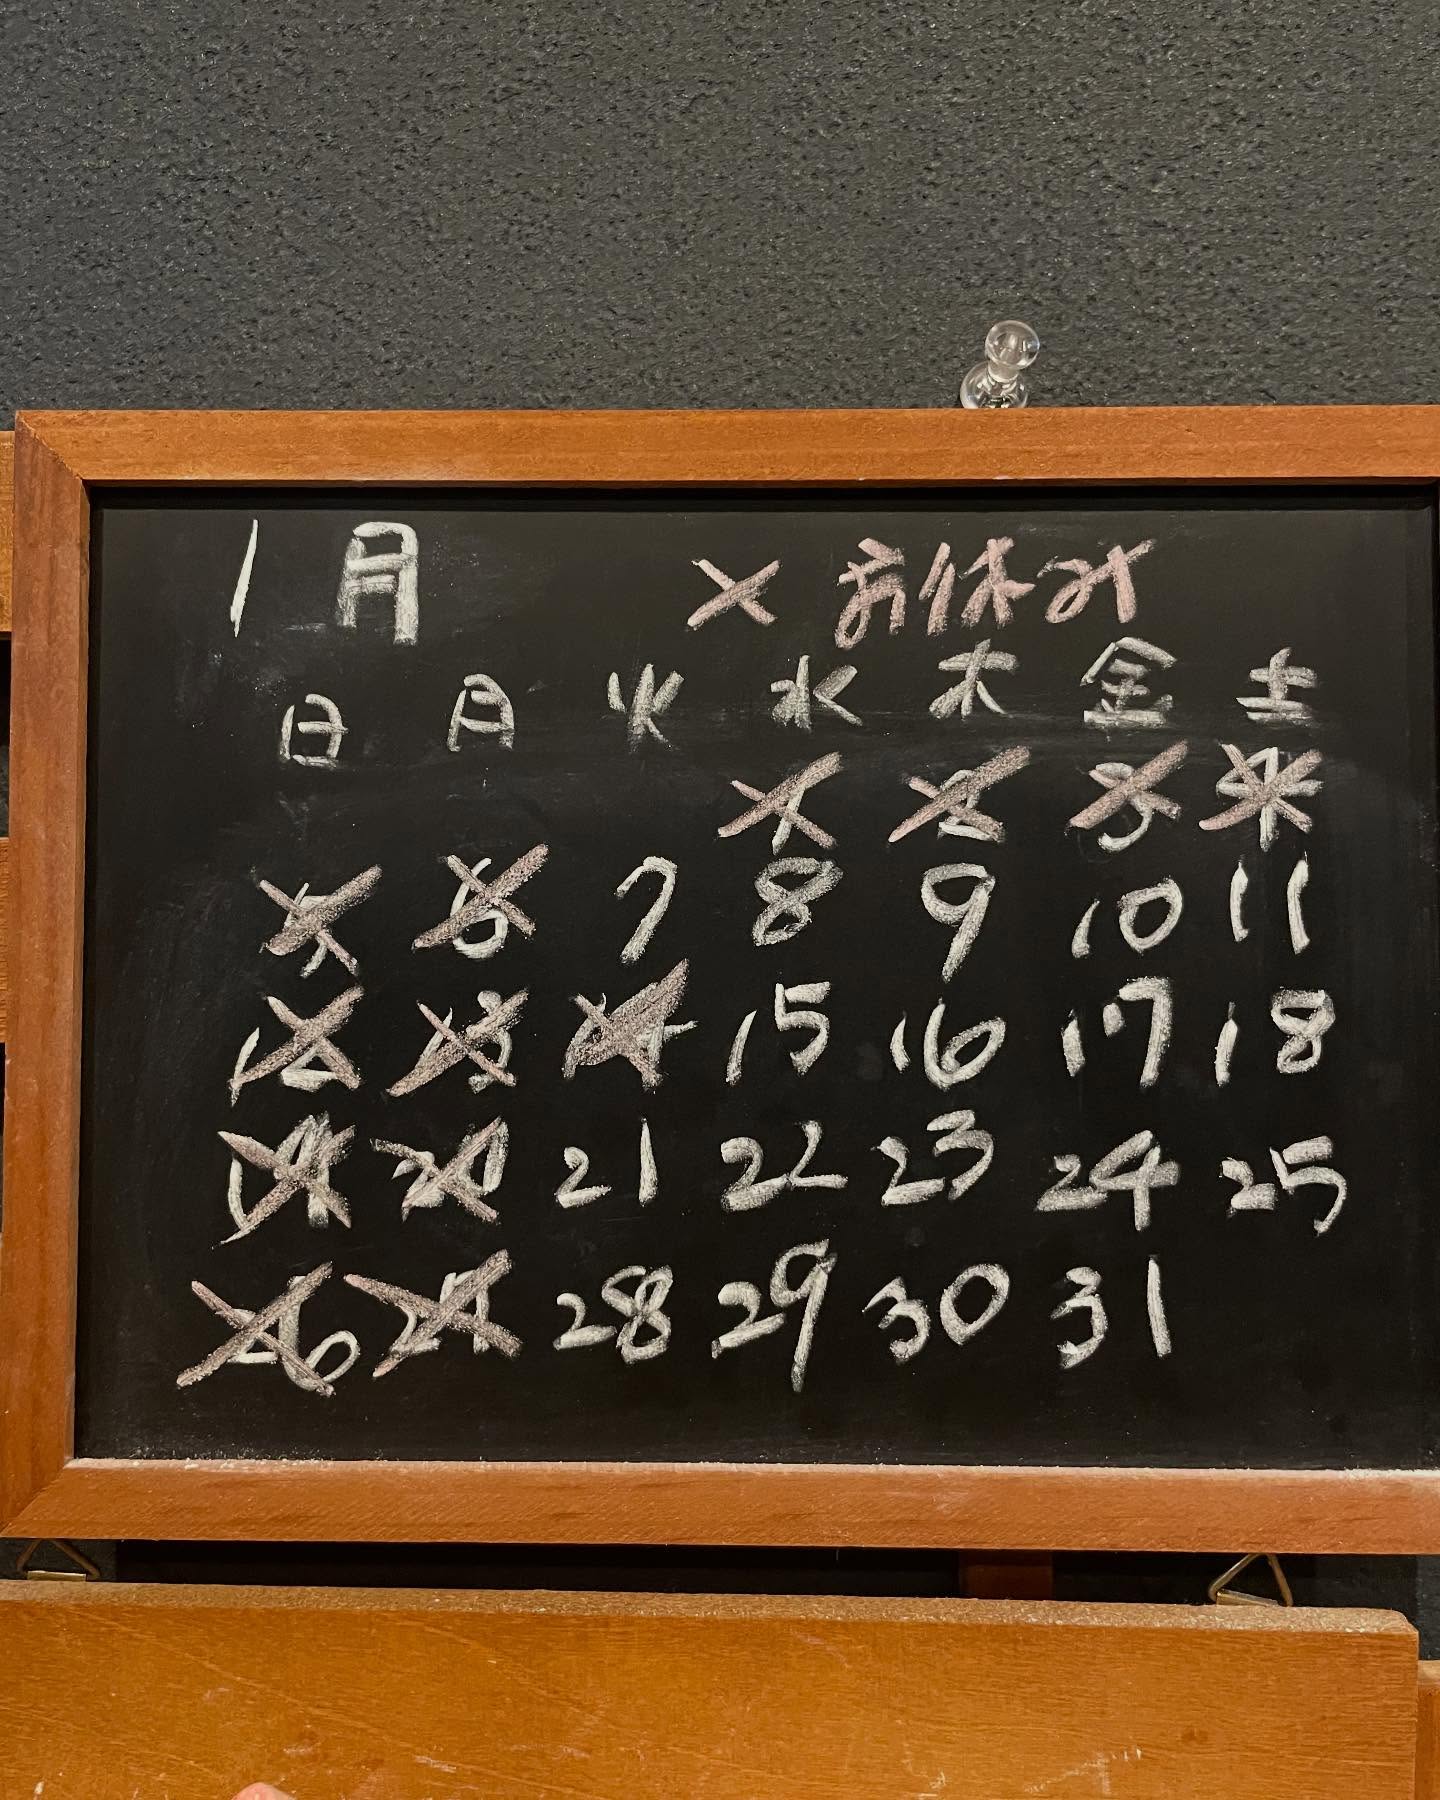 1月 × お休み
日 月 火 水 木 金 土
1 2 3 4
5 6 7 8 9 10 11
12 13 14 15 16 17 18
19 20 21 22 23 24 25
26 27 28 29 30 31